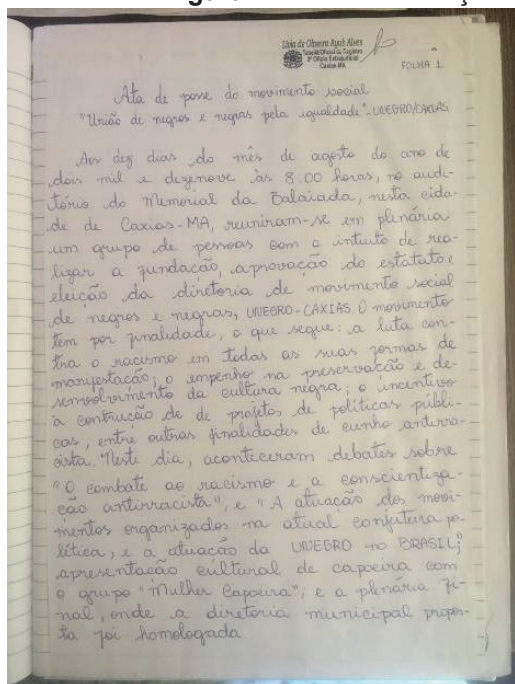 Lívia de Oliveira Ayub Alves
3º Ofício Extrajudicial
Caxias-MA
FOLHA 1
Ata de posse do movimento social
"União de negros e negras pela igualdade"-UNEGRO/CAXIAS
Aos dez dias do mês de agosto do ano de
dois mil e dezenove às 8:00 horas, no audi-
tório do Memorial da Balaiada, nesta cida-
de de Caxias-MA, reuniram-se em plenária
um grupo de pessoas com o intuito de rea-
lizar a fundação, aprovação do estatuto e
eleição da diretoria de movimento social
de negros e negras, UNEGRO-CAXIAS. O movimento
tem por finalidade, o que segue: a luta con-
tra o racismo em todas as suas formas de
manifestação; o empenho na preservação e de-
senvolvimento da cultura negra; o incentivo
a contrução de de projetos, de políticas públi-
cas, entre outras finalidades de cunho antirra-
cista. Neste dia, aconteceram debates sobre
"O combate ao racismo e a conscientiza-
ção antirracista", e "A atuação dos movi-
mentos organizados na atual conjutura po-
lítica, e a atuação da UNEGRO no BRASIL;
apresentação cultural de capoeira com
o grupo "Mulher Capoeira"; e a plenária fi-
nal, onde a diretoria municipal propos-
ta foi homologada